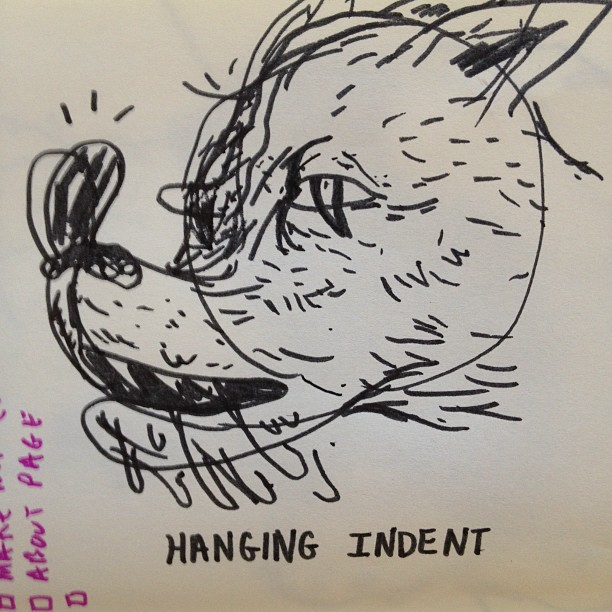 HANGING INDENT
MAKE
ABOUT PAGE